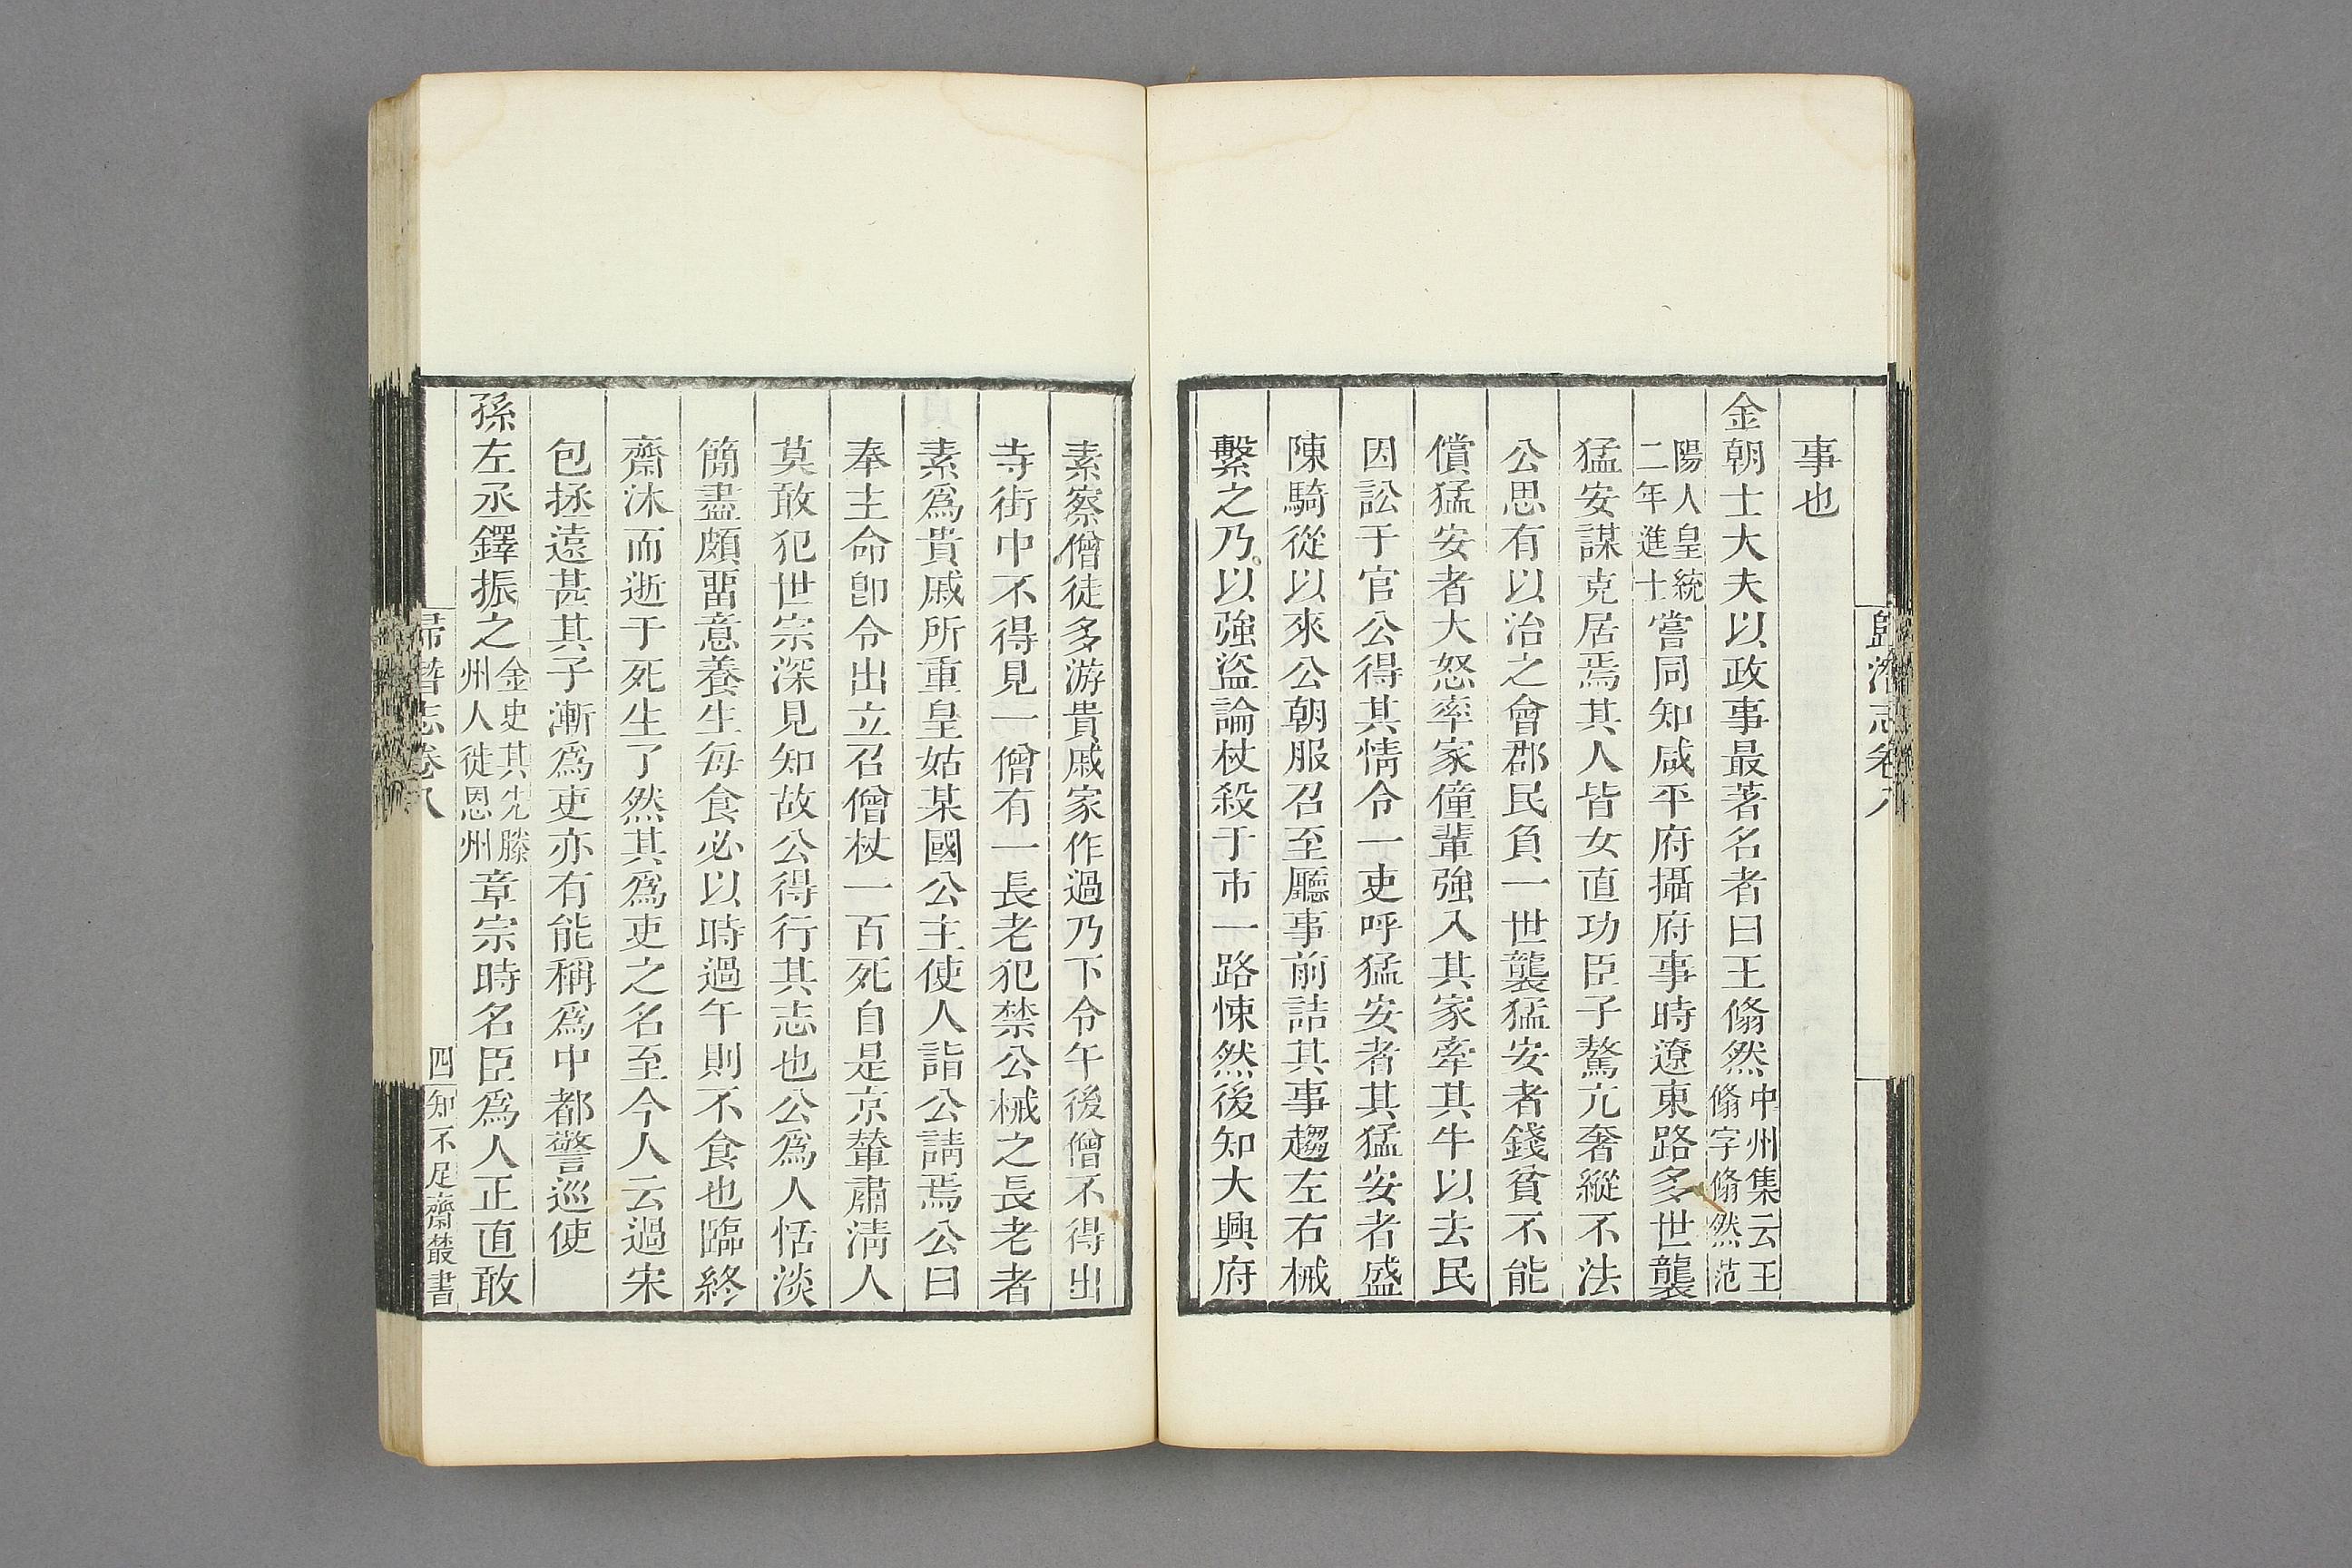 歸潛志卷八
事也
金朝士大夫以政事最著名者曰王翛然中州集云王翛字翛然范
陽人皇統二年進士嘗同知咸平府攝府事時遼東路多世襲
猛安謀克居焉其人皆女直功臣子驁亢奢縱不法
公思有以治之會郡民負一世襲猛安者錢貧不能
償猛安者大怒率家僮輩強入其家牽其牛以去民
因訟于官公得其情令一吏呼猛安者其猛安者盛
陳騎從以來公朝服召至廳事前詰其事趨左右械
繫之乃以強盜論杖殺于市一路悚然後知大興府
素察僧徒多游貴戚家作過乃下令午後僧不得出
寺街中不得見一僧有一長老犯禁公械之長老者
素爲貴戚所重皇姑某國公主使人詣公請焉公曰
奉主命卽令出立召僧杖一百死自是京輦肅淸人
莫敢犯世宗深見知故公得行其志也公爲人恬淡
簡盡頗畱意養生每食必以時過午則不食也臨終
齋沐而逝于死生了然其爲吏之名至今人云過宋
包拯遠甚其子漸爲吏亦有能稱爲中都警巡使
孫左丞鐸振之金史其先滕州人徙恩州章宗時名臣爲人正直敢
歸潛志卷八
四
知不足齋叢書